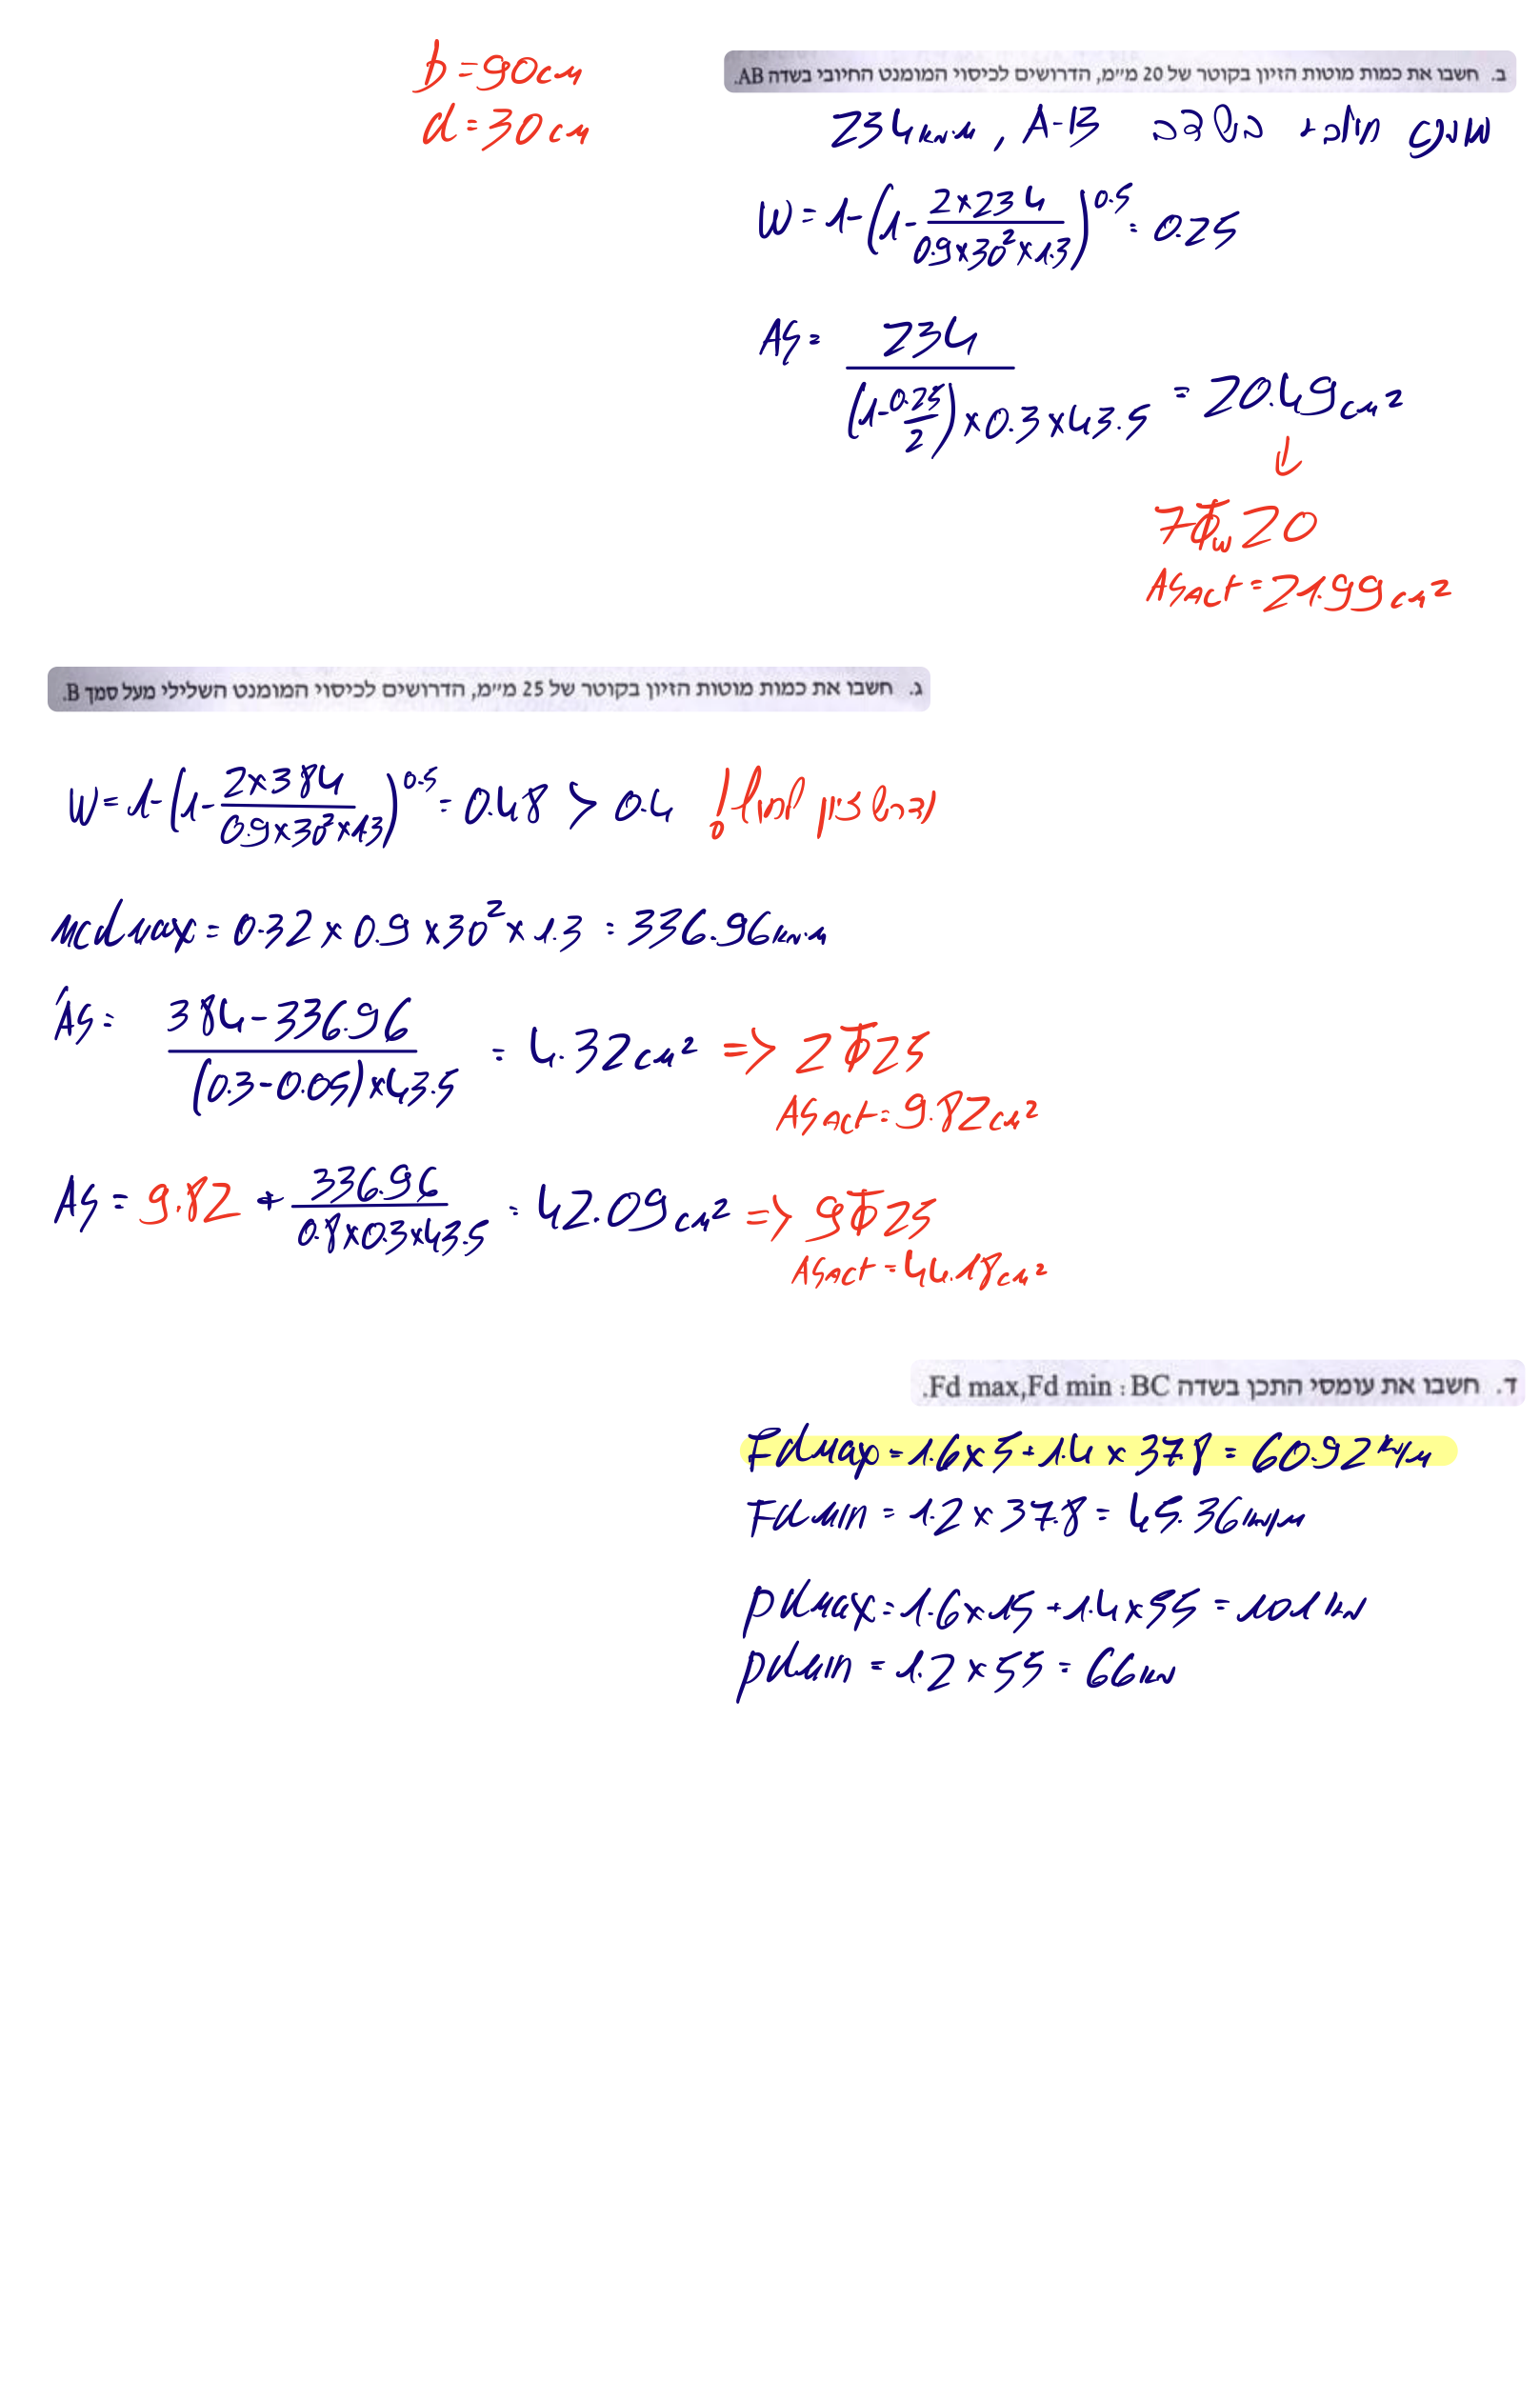 b = 90cm
d = 30cm
ב. חשבו את כמות מוטות הזיון בקוטר של 20 מ״מ, הדרושים לכיסוי המומנט החיובי בשדה AB.
מומנט חיובי בשדה A-B , 234 kN.m
W = 1-(1- 2×234 / 0.9×30²×1.3)^0.5 = 0.25
AS = 234 / (1- 0.25/2)×0.3×43.5 = 20.49cm²
↓
7Φw20
ASact = 21.99cm²
ג. חשבו את כמות מוטות הזיון בקוטר של 25 מ״מ, הדרושים לכיסוי המומנט השלילי מעל סמך B.
W = 1-(1- 2×384 / 0.9×30²×1.3)^0.5 = 0.48 > 0.4 נדרש זיון לחוץ!
Mcdmax = 0.32 × 0.9 × 30² × 1.3 = 336.96kN.m
A's = 384-336.96 / (0.3-0.05)×43.5 = 4.32cm² => 2Φ25
ASact = 9.82cm²
AS = 9.82 + 336.96 / 0.8×0.3×43.5 = 42.09cm² => 9Φ25
ASact = 44.18cm²
ד. חשבו את עומסי התכן בשדה Fd max,Fd min : BC.
Fdmax = 1.6×5+1.4×37.8 = 60.92 kN/m
Fdmin = 1.2×37.8 = 45.36kN/m
Pdmax = 1.6×15+1.4×55 = 101kN
Pdmin = 1.2×55 = 66kN